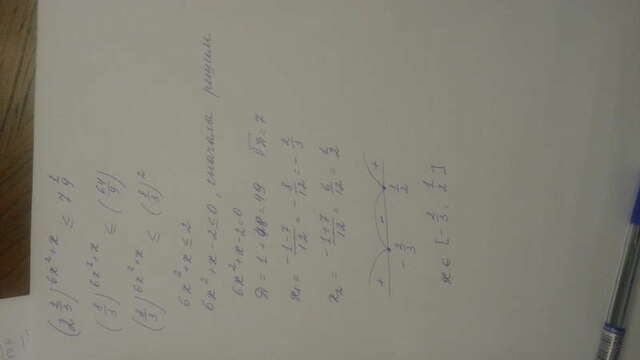 (2 2/3)^(6x²+x) ≤ 7 1/9
(8/3)^(6x²+x) ≤ (64/9)
(8/3)^(6x²+x) ≤ (8/3)²
6x²+x ≤ 2
6x²+x-2≤0, сначала решим
6x²+x-2=0
D = 1+48=49 √D=7
x₁ = (-1-7)/12 = -8/12 = -2/3
x₂ = (-1+7)/12 = 6/12 = 1/2
+ - +
-2/3 1/2
x ∈ [-2/3, 1/2]